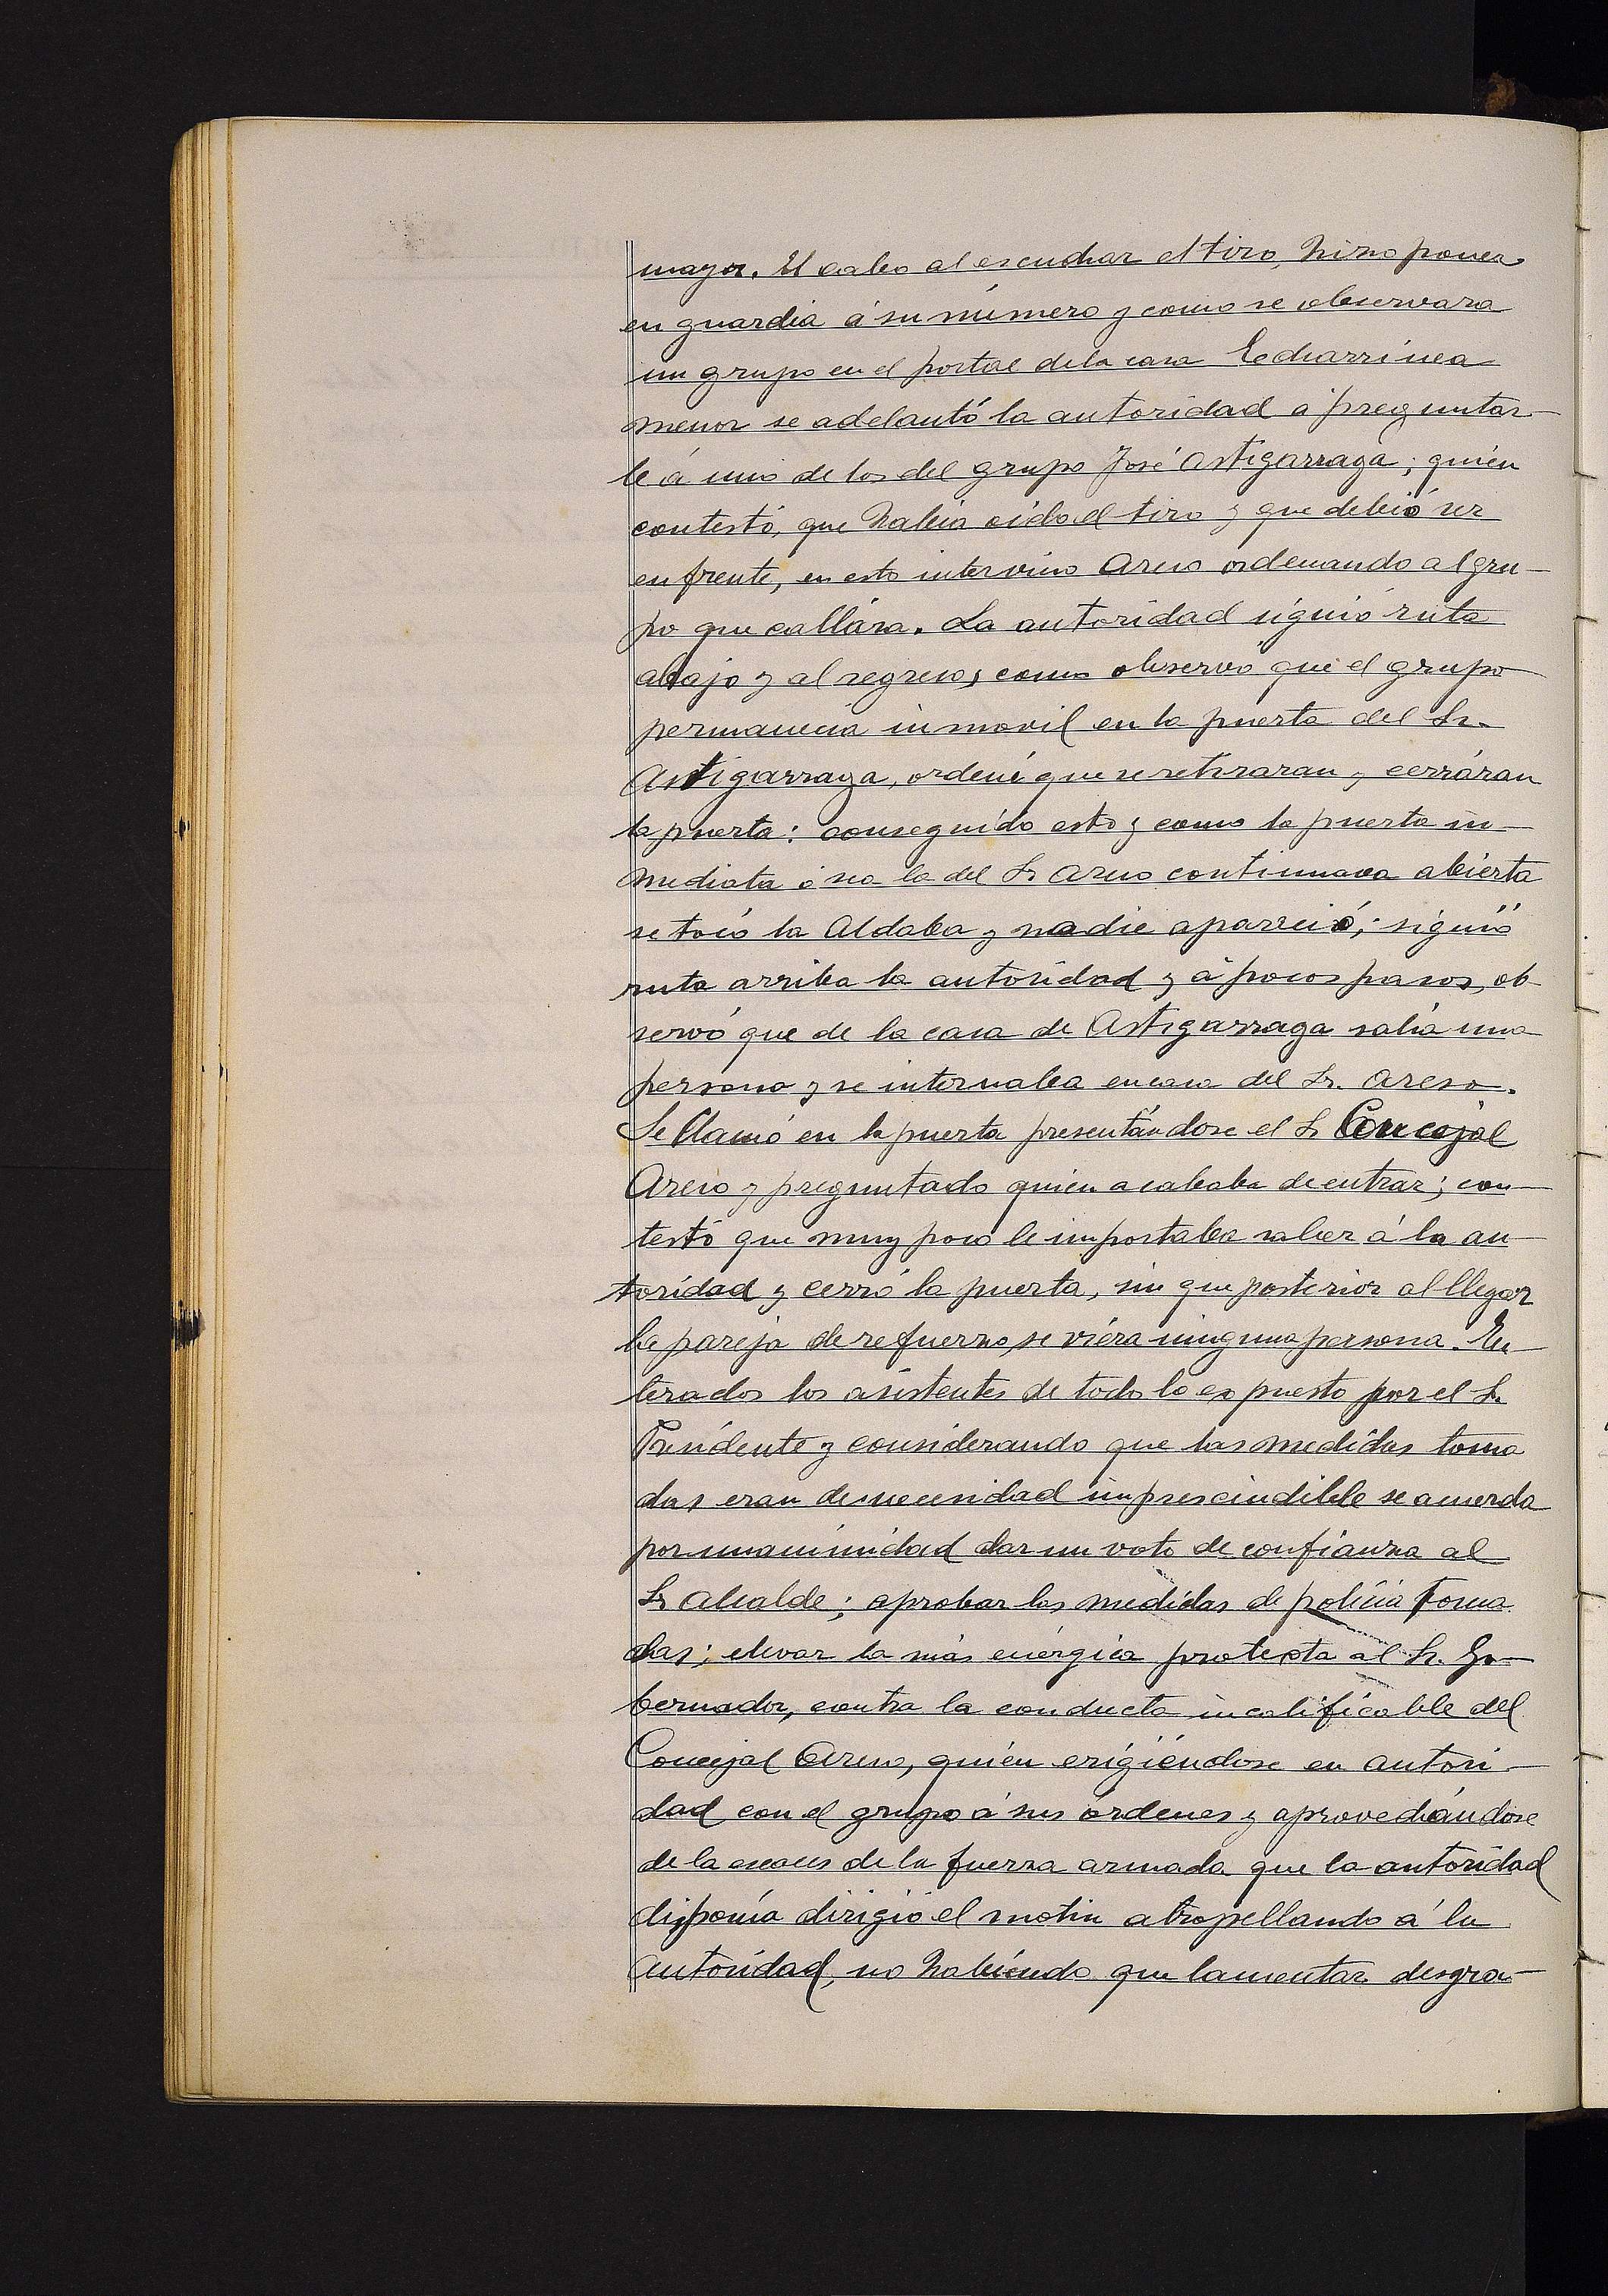 mayor. El cabo al escuchar el tiro, hizo poner
en guardia á su número y como se observara
un grupo en el portal de la casa Echarrinea
menor se adelantó la autoridad a preguntar-
le á uno de los del grupo José Astigarraga; quién
contestó, que habia oido el tiro y que debió ser
en frente, en esto intervino Areso ordenando al gru-
po que callára. La autoridad siguió ruta
abajo y al regreso, como observó que el grupo
permanecia inmovil en la puerta del Sr.
Astigarraga, ordenó que se retiraran y cerráran
la puerta: conseguido esto y como la puerta in-
mediata ó sea la del Sr Areso continuava abierta
se tocó la Aldaba y nadie apareció; siguió
ruta arriba la autoridad y á pocos pasos, ob-
servó que de la casa de Astigarraga salia una
persona y se internaba en casa del Sr. Areso.
Se llamó en la puerta presentándose el Sr Concejal
Areso y preguntado quien acababa de entrar; con-
testó que muy poco le importaba saber á la au-
toridad y cerró la puerta, sin que posterior al llegar
la pareja de refuerzo, se viera ninguna persona. En-
terados los asistentes de todo lo expuesto por el Sr.
Presidente y considerando que las medidas toma
das eran de necesidad imprescindible se acuerda
por unanimidad dar un voto de confianza al
Sr Alcalde; aprobar las medidas de policia toma
das; elevar la más enérgica protexta al Sr. Go-
bernador, contra la conducta incalificable del
Concejal Areso, quién erigiéndose en autori-
dad con el grupo á sus órdenes y aprovechándose
de la escaces de la fuerza armada que la autoridad
disponía dirigió el motin atropellando á la
autoridad, no habiendo que lamentar desgra-